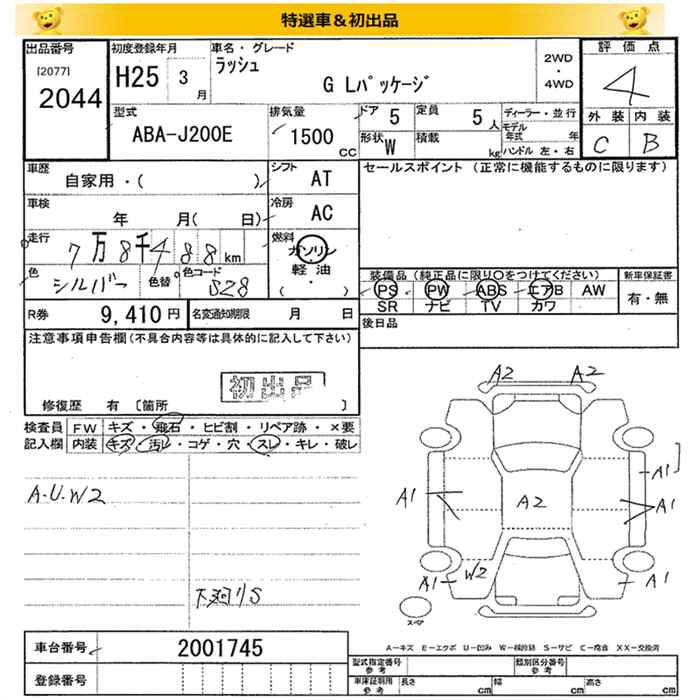 特選車＆初出品
出品番号
[2077]
2044
初度登録年月
H25 3月
車名・グレード
ラッシュ
G Lパッケージ
2WD・4WD
評価点
4
外装 内装
C B
型式
ABA-J200E
排気量
1500 CC
ドア 5
定員 5人
形状 W
積載 kg
ディーラー・並行
モデル年式 年
ハンドル 左・右
車歴
自家用・( )
シフト
AT
セールスポイント (正常に機能するものに限ります)
車検
年 月( 日)
冷房
AC
走行
7万8千488km
燃料
ガソリン
軽油
( ・ )
色
シルバー
色替
色コード
S28
装備品 (純正品に限り○をつけてください)
新車保証書
PS PW ABS エアB AW
SR ナビ TV カワ
有・無
R券 9,410円
名変通知期限 月 日
後日品
注意事項申告欄(不具合内容等は具体的に記入して下さい)
初出品
修復歴 有 [箇所 ]
検査員 FW キズ・飛石・ヒビ割・リペア跡・×要
記入欄 内装 キズ・汚レ・コゲ・穴・スレ・キレ・破レ
A.U.W2
下廻りS
A2 A2
A1 A2 A1 A1
A1 W2 A1
スペア
A－キズ E－エクボ U－凹み W－補修跡 S－サビ C－腐食 XX－交換済
車台番号 2001745
登録番号
型式指定番号 参考
類別区分番号 参考
車庫証明用 参考
長さ cm 幅 cm 高さ cm